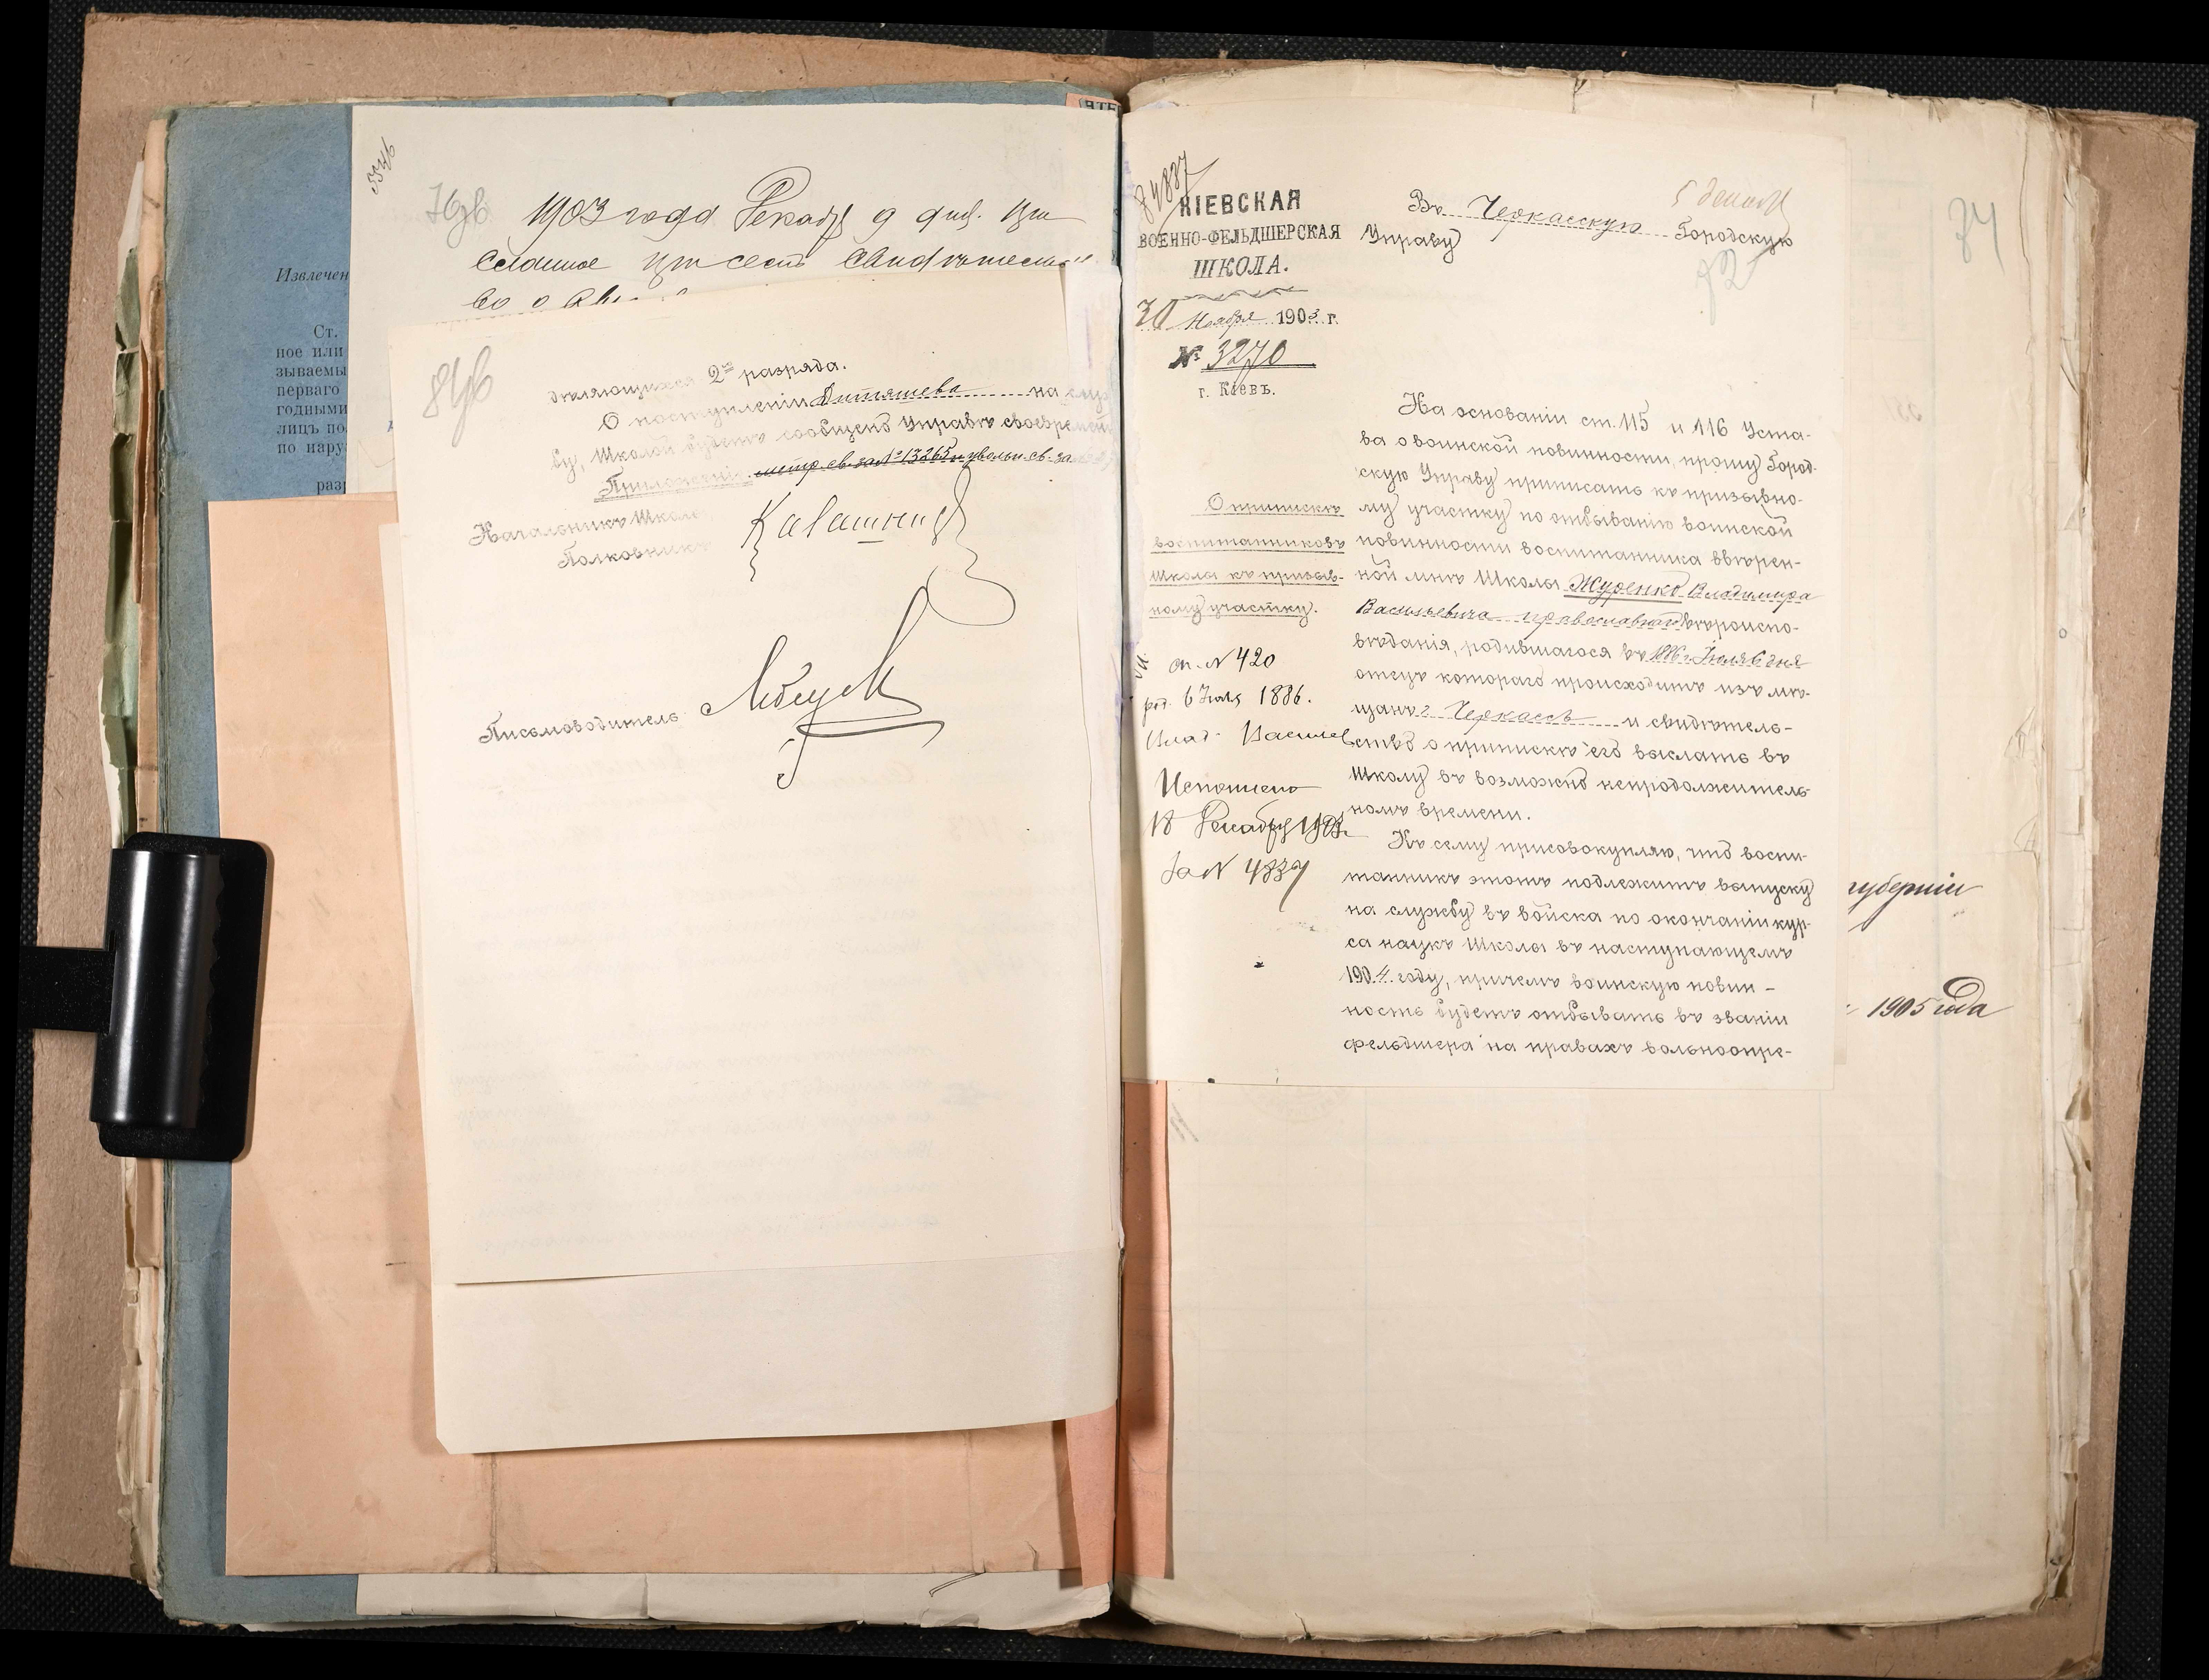 5346
Извлечен
Ст.
ное или
зываемы
перваго
годными
лицъ по
по нару
разр
1903 года Декабр 9 дня. При
сланное при семъ свидѣтельст
во о
84об
дѣляющихся 2го разряда.
О поступленіи Дитяшева на служ
бу, Школой будетъ сообщено Управѣ своевремен
Приложеніе: метр. св. за № 13265 и увольн. св. за
Начальникъ Школы
Полковникъ Калашник
Письмоводитель
84
82
№ 4837
КІЕВСКАЯ
ВОЕННО-ФЕЛЬДШЕРСКАЯ
ШКОЛА.
30 Ноября 1903 г.
№ 3270
г. Кіевъ.
О припискѣ
воспитанниковъ
Школы къ призыв-
ному участку.
сп. № 420
род. 6 Іюля 1886.
Влад. Васильев
Исполнено
18 Декабря 1903 г.
за № 4837
5 декабр
Въ Черкасскую Городскую
Управу
На основаніи ст. 115 и 116 Уста-
ва о воинской повинности, прошу Город-
скую Управу приписать къ призывно-
му участку по отбыванію воинской
повинности воспитанника ввѣрен-
ной мнѣ Школы Журенко Владимира
Васильевича православнаго вѣроиспо-
вѣданія, родившагося въ 1886 г. Іюля 6 дня
отецъ котораго происходитъ изъ мѣ-
щанъ г. Черкассъ и свидѣтель-
ство о припискѣ его выслать въ
Школу въ возможно непродолжитель-
номъ времени.
Къ сему присовокупляю, что воспи-
танникъ этотъ подлежитъ выпуску
на службу въ войска по окончаніи кур-
са наукъ Школы въ наступающемъ
1904 году, причемъ воинскую повин-
ность будетъ отбывать въ званіи
фельдшера на правахъ вольноопре-
губерніи
1905 года